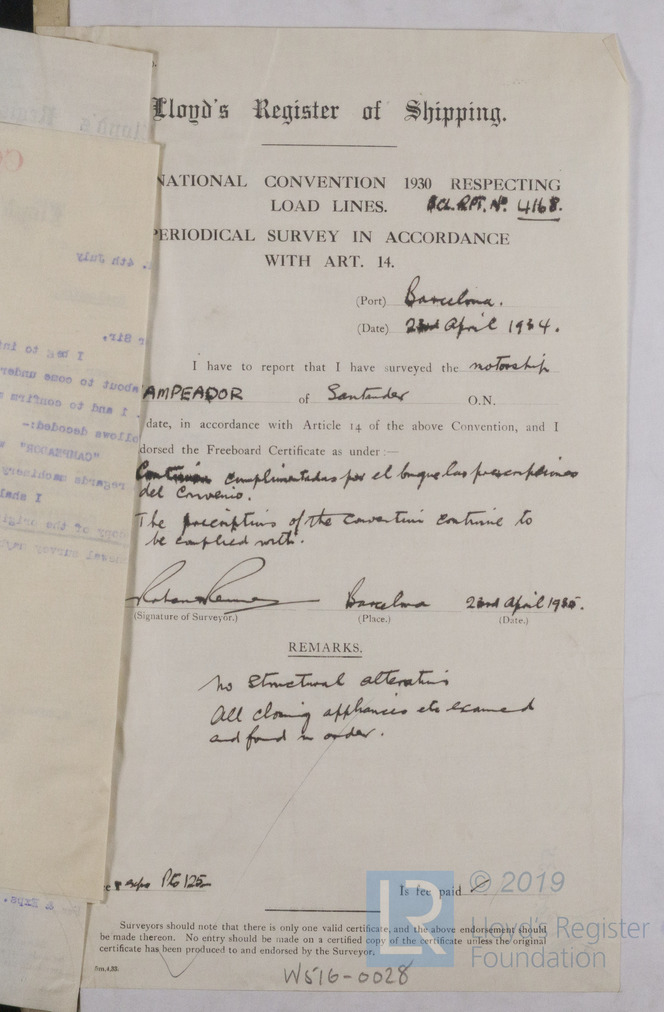 Lloyd's Register of Shipping.
NATIONAL CONVENTION 1930 RESPECTING
LOAD LINES. BCL. RPT. No. 4168.
PERIODICAL SURVEY IN ACCORDANCE
WITH ART. 14.
(Port) Barcelona.
(Date) 23rd April 1934.
I have to report that I have surveyed the motorship
AMPEADOR of Santander O.N.
date, in accordance with Article 14 of the above Convention, and I
dorsed the Freeboard Certificate as under :—
cumplimentadas por el buque las prescripciones
del Convenio.
The prescriptions of the convention continue to
be complied with.
Barcelona 22nd April 1935.
(Signature of Surveyor.) (Place.) (Date.)
REMARKS.
No structural alterations
All closing appliances etc examed
and found in order.
& exps Pts 125
Is fee paid
Surveyors should note that there is only one valid certificate, and the above endorsement should
be made thereon. No entry should be made on a certified copy of the certificate unless the original
certificate has been produced to and endorsed by the Surveyor.
5m.4.33.
W516-0028
LR
© 2019
Lloyd's Register
Foundation
. 4th July
r Sir,
I beg to in
about to come under
. I and to confirm
ollows decoded:-
"CAMPEADOR"
regards machinery
I shal
copy of the origi
& Exps.